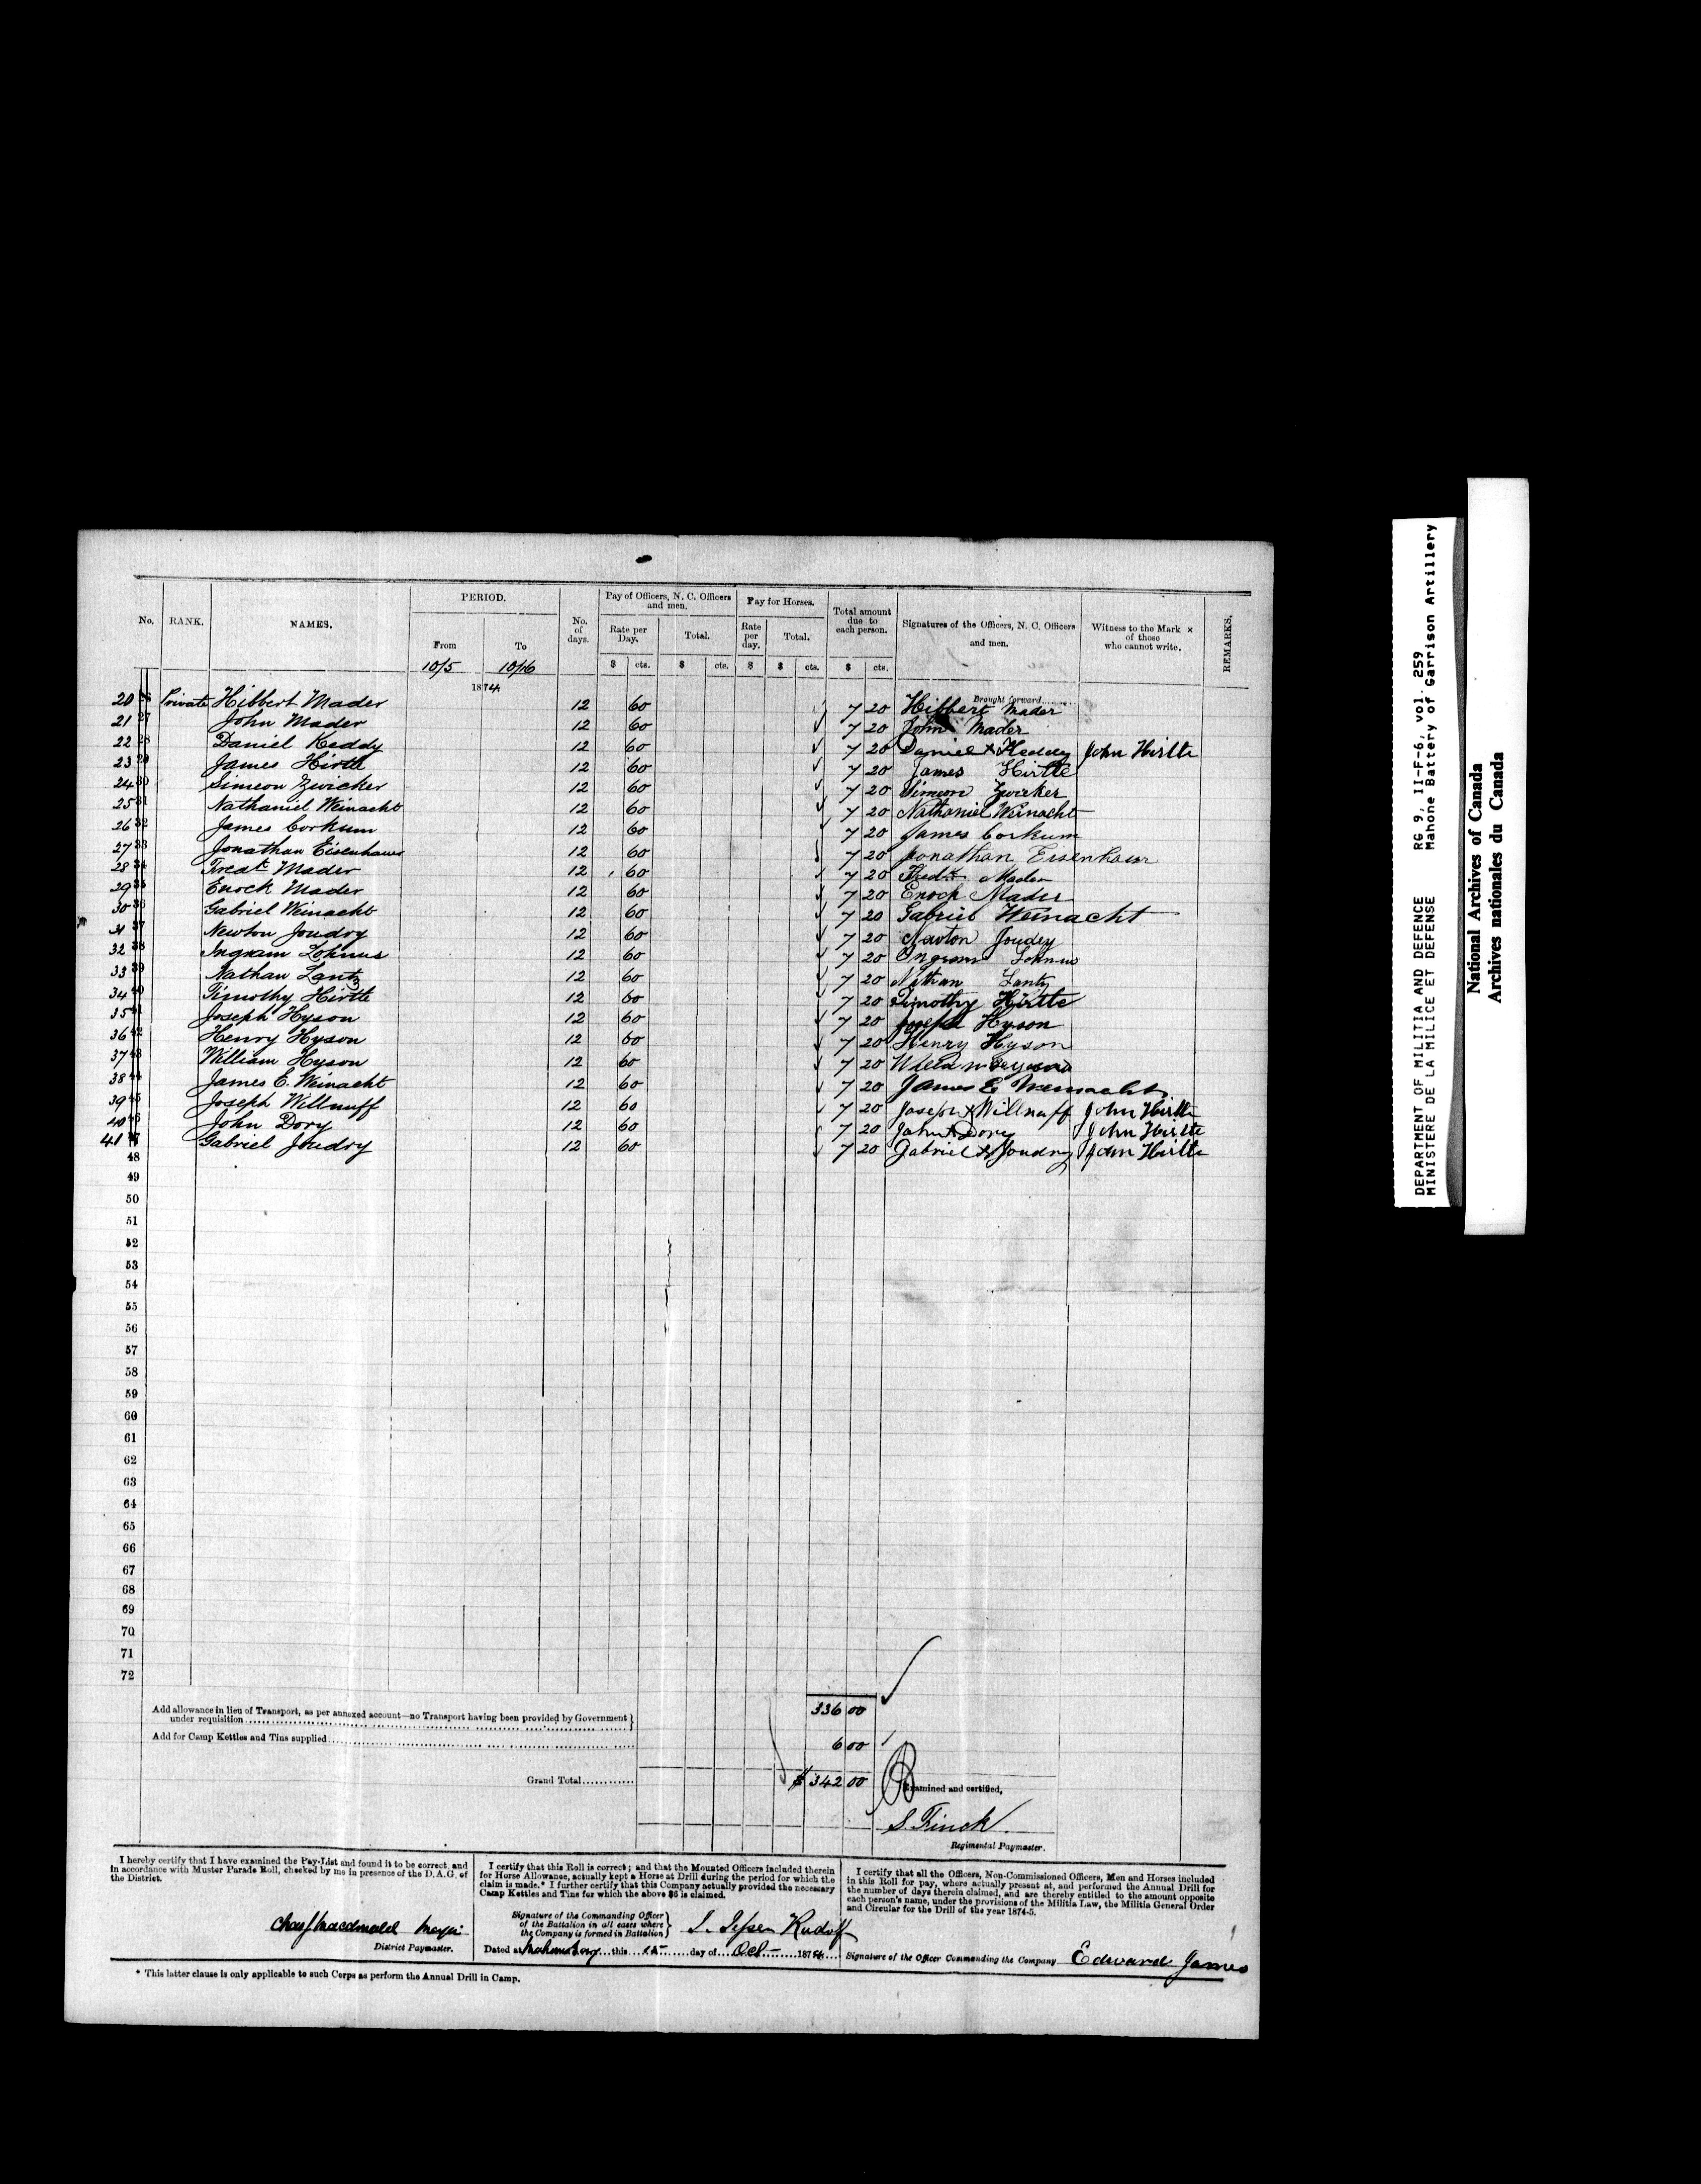 No. RANK. NAMES. PERIOD. No. of days. Pay of Officers, N. C. Officers and men. Pay for Horses. Total amount due to each person. Signatures of the Officers, N. C. Officers and men. Witness to the Mark × of those who cannot write. REMARKS.
From To Rate per Day. Total. Rate per day. Total.
10/5 10/16 $ cts. $ cts. $ $ cts. $ cts.
1874 Brought forward
20 Private Hibbert Mader 12 60 7 20 Hibbert Mader
21 John Mader 12 60 7 20 John Mader
22 Daniel Keddy 12 60 7 20 Daniel × Keddy John Hirtle
23 James Hirtle 12 60 7 20 James Hirtle
24 Simeon Zwicker 12 60 7 20 Simeon Zwicker
25 Nathaniel Weinacht 12 60 7 20 Nathaniel Weinacht
26 James Corkum 12 60 7 20 James Corkum
27 Jonathan Eisenhauer 12 60 7 20 Jonathan Eisenhaur
28 Mader 12 60 7 20 Mader
29 Enock Mader 12 60 7 20 Enoch Mader
30 Gabriel Weinacht 12 60 7 20 Gabriel Weinacht
31 Newton Joudry 12 60 7 20 Newton Joudry
32 Ingram Lohnus 12 60 7 20 Ingram Lohnus
33 Nathan Lantz 12 60 7 20 Nathan Lantz
34 Timothy Hirtle 12 60 7 20 Timothy Hirtle
35 Joseph Hyson 12 60 7 20 Joseph Hyson
36 Henry Hyson 12 60 7 20 Henry Hyson
37 William Hyson 12 60 7 20
38 James E. Weinacht 12 60 7 20 James E Weinacht
39 Joseph Willnuff 12 60 7 20 Joseph × Willnuff John Hirtle
40 John Dory 12 60 7 20 John × Dory John Hirtle
41 Gabriel Joudry 12 60 7 20 Gabriel × Joudry John Hirtle
48
49
50
51
52
53
54
55
56
57
58
59
60
61
62
63
64
65
66
67
68
69
70
71
72
Add allowance in lieu of Transport, as per annexed account—no Transport having been provided by Government under requisition 336 00
Add for Camp Kettles and Tins supplied 6 00
Grand Total $ 342 00 Examined and certified,
S. Finck
Regimental Paymaster.
I hereby certify that I have examined the Pay-List and found it to be correct, and in accordance with Muster Parade Roll, checked by me in presence of the D. A. G. of the District.
Macdonald Major
District Paymaster.
I certify that this Roll is correct; and that the Mounted Officers included therein for Horse Allowance, actually kept a Horse at Drill during the period for which the claim is made.* I further certify that this Company actually provided the necessary Camp Kettles and Tins for which the above $6 is claimed.
Signature of the Commanding Officer of the Battalion in all cases where the Company is formed in Battalion Rudolf
Dated at this day of Oct 1874
I certify that all the Officers, Non-Commissioned Officers, Men and Horses included in this Roll for pay, where actually present at, and performed the Annual Drill for the number of days therein claimed, and are thereby entitled to the amount opposite each person's name, under the provisions of the Militia Law, the Militia General Order and Circular for the Drill of the year 1874-5.
Signature of the Officer Commanding the Company Edward James
* This latter clause is only applicable to such Corps as perform the Annual Drill in Camp.
DEPARTMENT OF MILITIA AND DEFENCE RG 9, II-F-6, vol. 259
MINISTERE DE LA MILICE ET DEFENSE Mahone Battery of Garrison Artillery
National Archives of Canada
Archives nationales du Canada